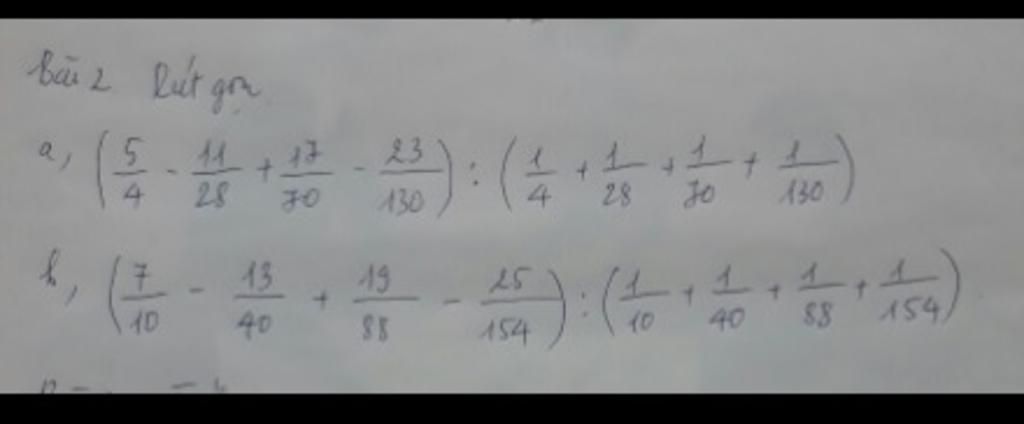 Bài 2 Rút gọn
a, (5/4 - 11/28 + 17/70 - 23/130) : (1/4 + 1/28 + 1/70 + 1/130)
b, (7/10 - 13/40 + 19/88 - 25/154) : (1/10 + 1/40 + 1/88 + 1/154)